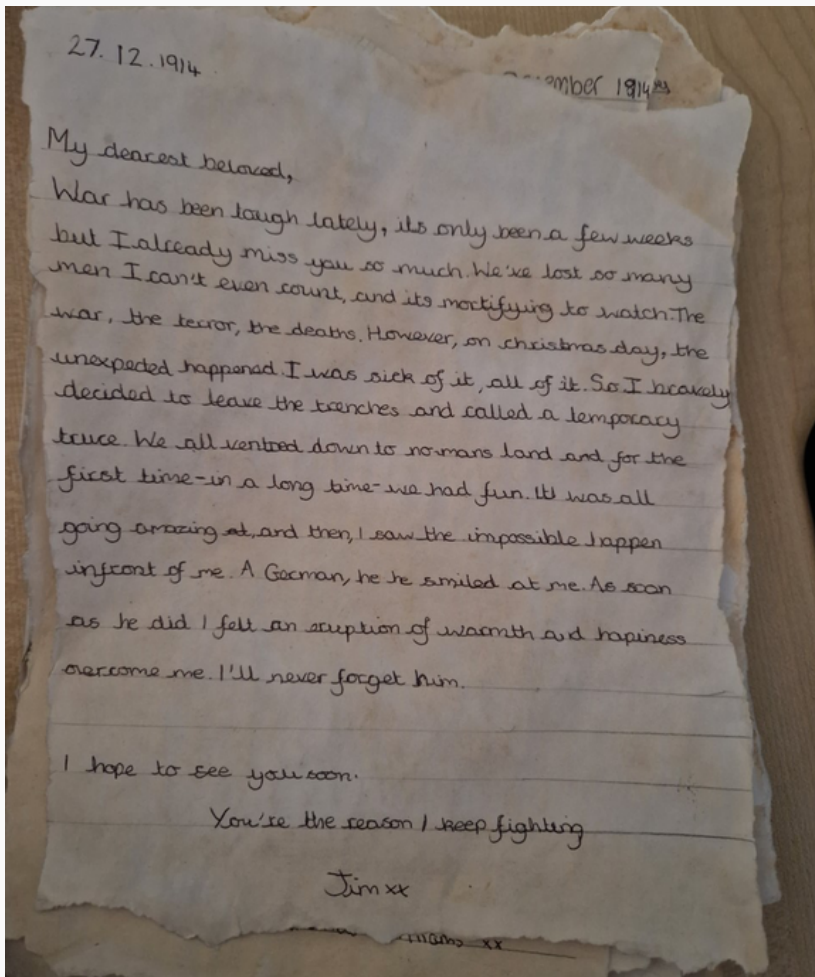 27.12.1914
ember 1914
My dearest beloved,
War has been tough lately, its only been a few weeks
but I already miss you so much. We've lost so many
men I can't even count, and its mortifying to watch. The
war, the terror, the deaths. However, on christmas day, the
unexpeded happened. I was sick of it, all of it. So I bravely
decided to leave the trenches and called a temporary
truce. We all ventred down to no mans land and for the
first time-in a long time-we had fun. It was all
going amazing and then, I saw the impossible happen
infront of me. A German, he he smiled at me. As soon
as he did I felt an eruption of warmth and hapiness
overcome me. I'll never forget him.
I hope to see you soon.
You're the reason I keep fighting
Jim xx
xx